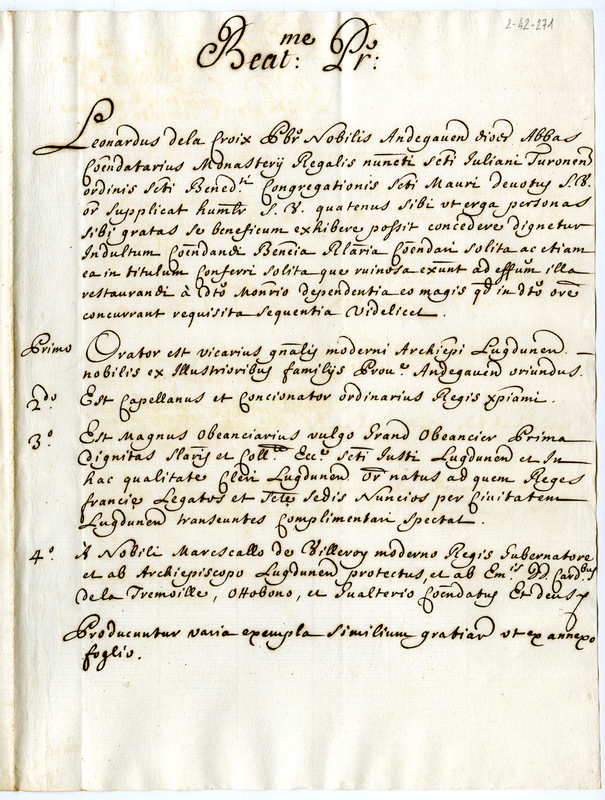 2-42-271
Beat:me Pr:
Leonardus dela Croix Pbr Nobilis Andegaven dioces Abbas
Coendatarius Monasterij Regalis nuncti Scti Iuliani Turonen
ordinis Scti Bened.ti Congregationis Scti Mauri devotus S.V.
or supplicat humlr S.V. quatenus sibi vt erga personas
sibi gratas se beneficum exhibere possit concedere dignetur
Indultum Coendandi Beneia Rlaria Coendari solita ac etiam
ea in titulum Conferri solita que ruinosa exunt ad effum illa
restaurandi à dto Monrio dependentia eo magis qd in dto ore
concurrant requisita sequentia Videlicet.
Primo Orator est vicarius gnalis moderni Archiepi Lugdunen
nobilis ex Illustrioribus familijs Prou.e Andegaven oriundus.
2do Est Capellanus et Concionator ordinarius Regis xpiami.
3o Est Magnus Obeanciarius vulgo Grand Obeancier Prima
dignitas Slaris et Coll. Ecc.e Scti Iusti Lugdunen et In
hac qualitate Cleri Lugdunen Or natus ad quem Reges
francie Legatos et Scte Sedis Nuncios per Civitatem
Lugdunen transeuntes Complimentari Spectat.
4o A Nobili Marescallo de Villeroy moderno Regis Gubernatore
et ab Archiepiscopo Lugdunen protectus, et ab Em.is DD. Card.bus
dela Tremoille, Ottobono, et Gualterio Coendatus Et deus
Producuntur varia exempla similium gratiar vt ex annexo
foglio.